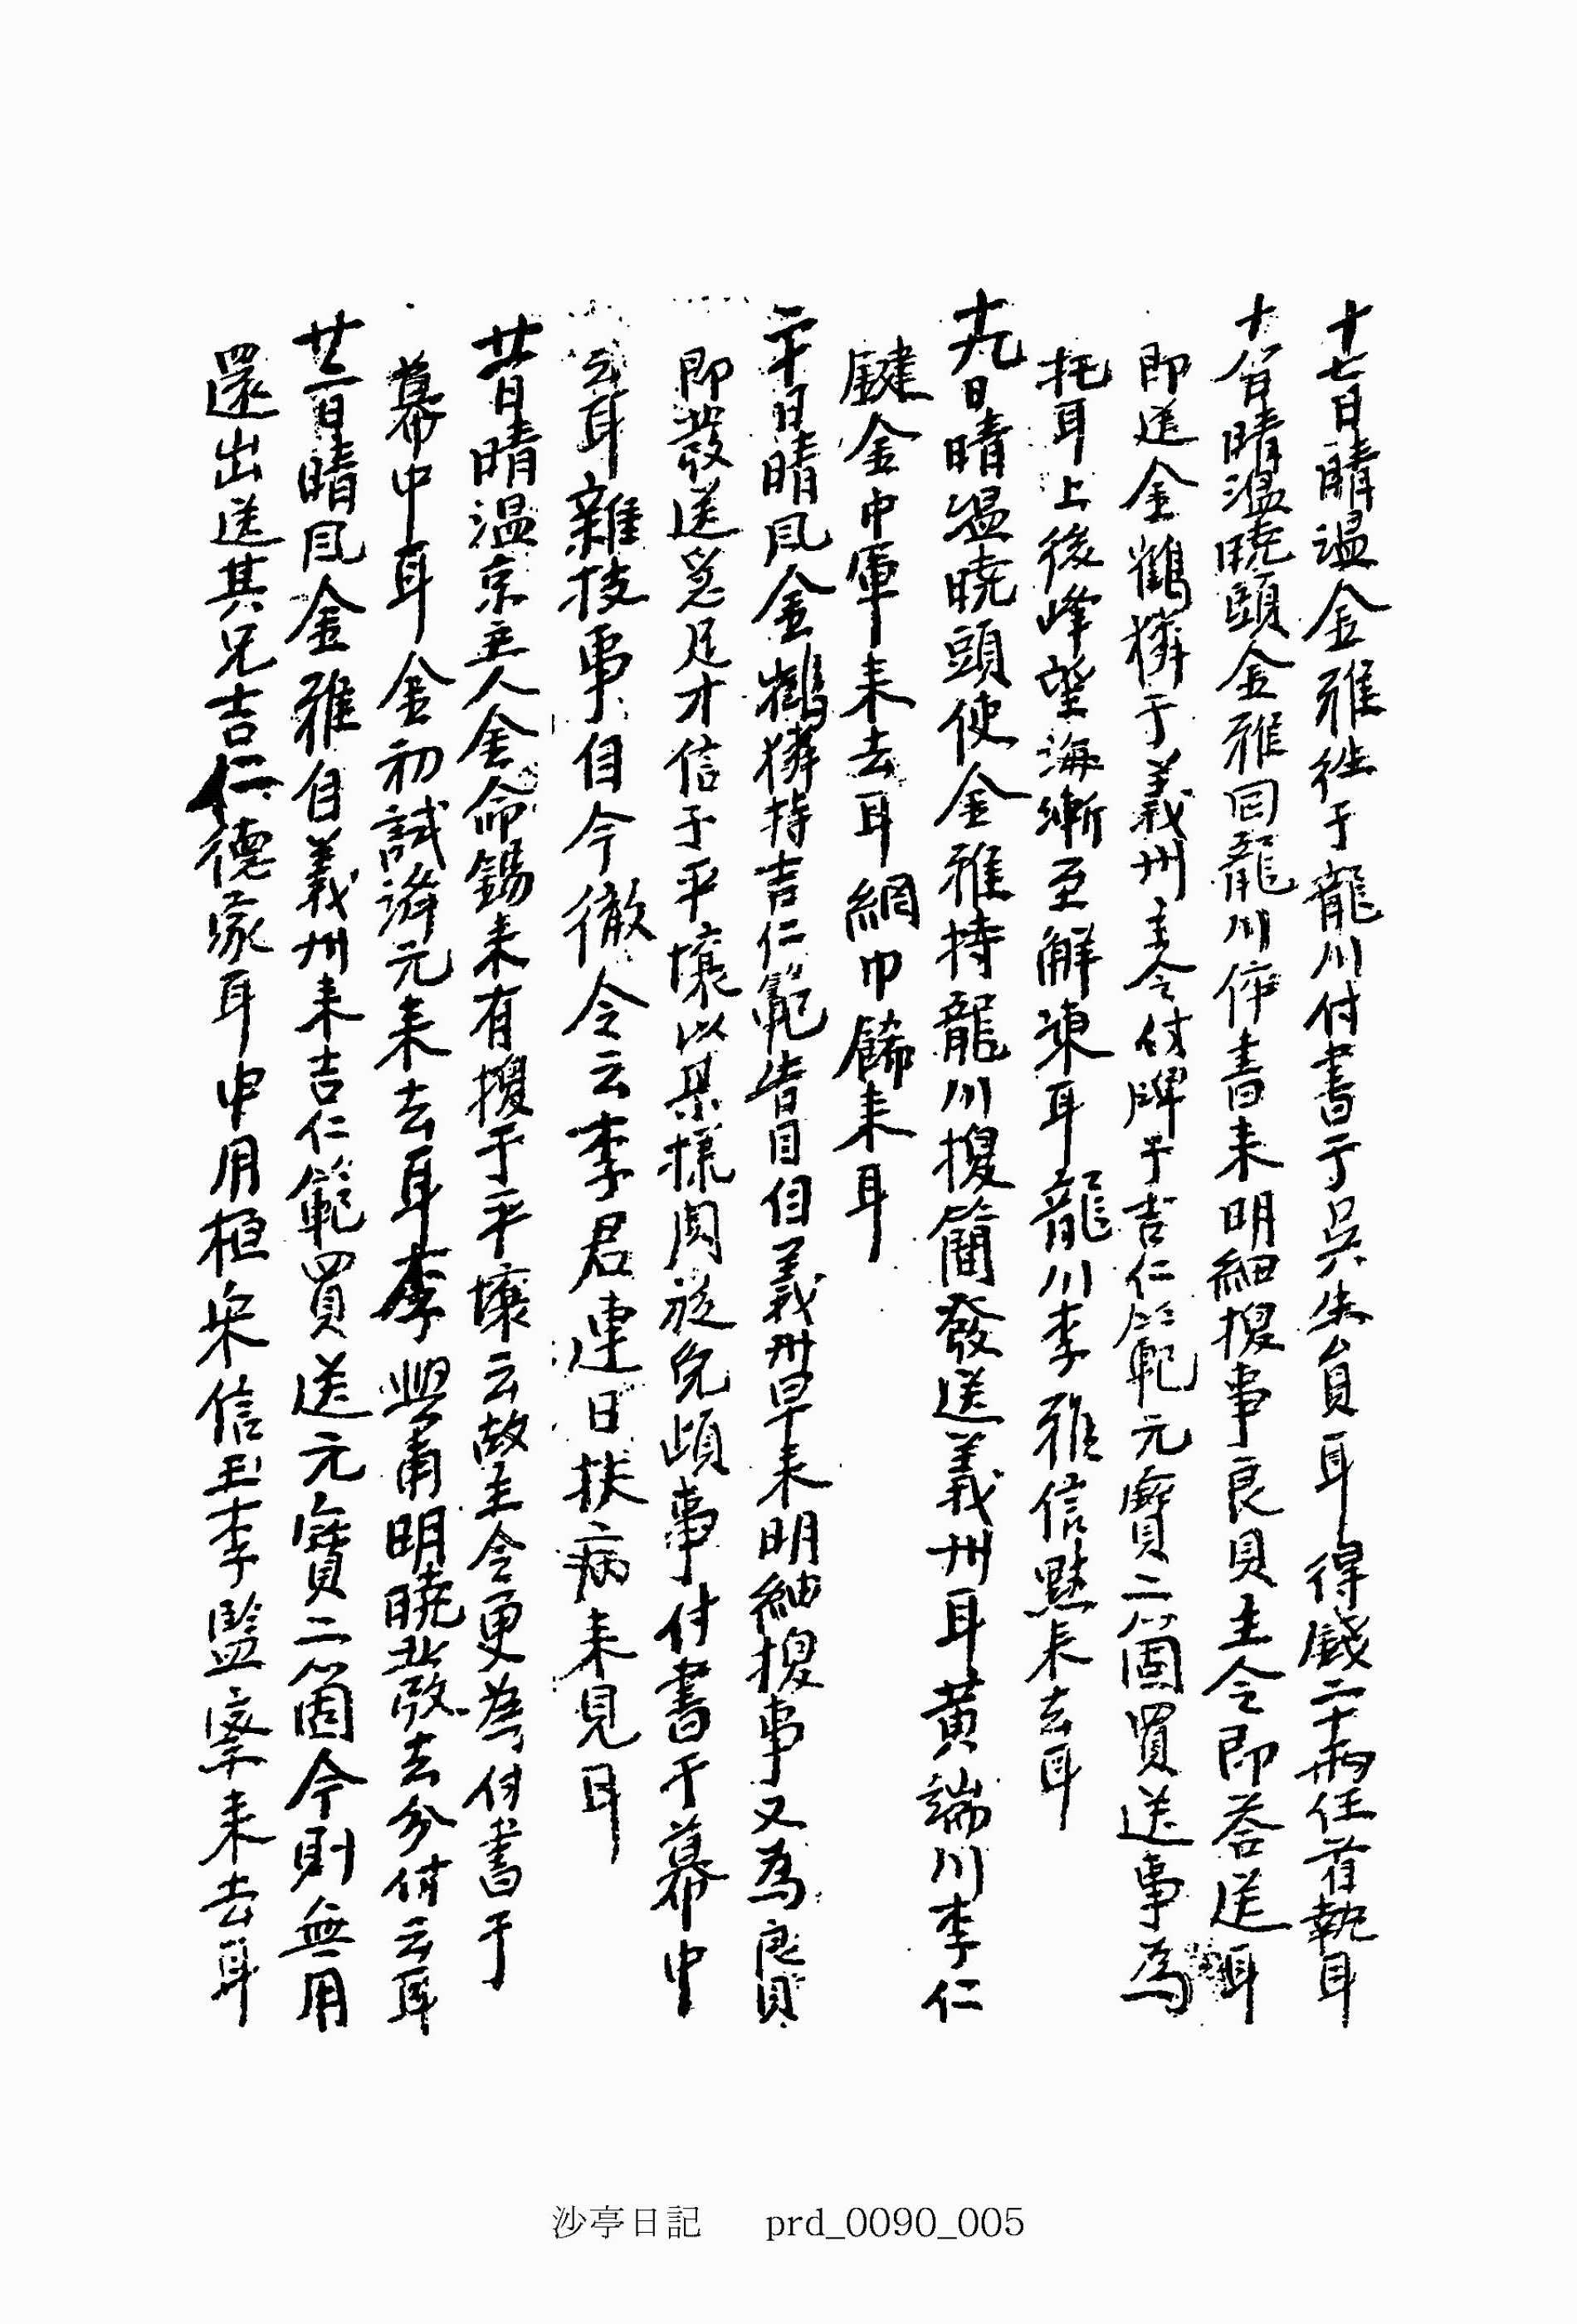 十七日晴温金雅徃于龍川付書于吳生員耳得錢二十兩任首執耳
十八日晴温曉頭金雅回龍川倅書來明細搜事良貝主令即答送耳
即送金鶴獜于義州主令付牌于吉仁範元寶二箇買送事爲
托耳上後峰望海漸至解凍耳龍川李雅信默長去耳
十九日晴温曉頭使金雅持龍川搜簡發送義州耳黃端川李仁
鍵金中軍來去耳網巾飾來耳
二十日晴風金鶴獜持吉仁範告目自義州早來明紬搜事又爲良貝
即發送急足才信于平壤以某樣周旋免頉事付書于幕中
云耳雜技事自今徹令云李君連日扶病來見耳
廿一日晴温京主人金命錫來有搜于平壤云故主令更爲付書于
幕中耳金初試濟元來去耳李興甫明曉北發去分付云耳
廿二日晴風金雅自義州來吉仁範買送元寶二箇今則無用
還出送其兄吉仁德家耳申用恒宋信玉李監察來去耳
沙亭日記 prd_0090_005